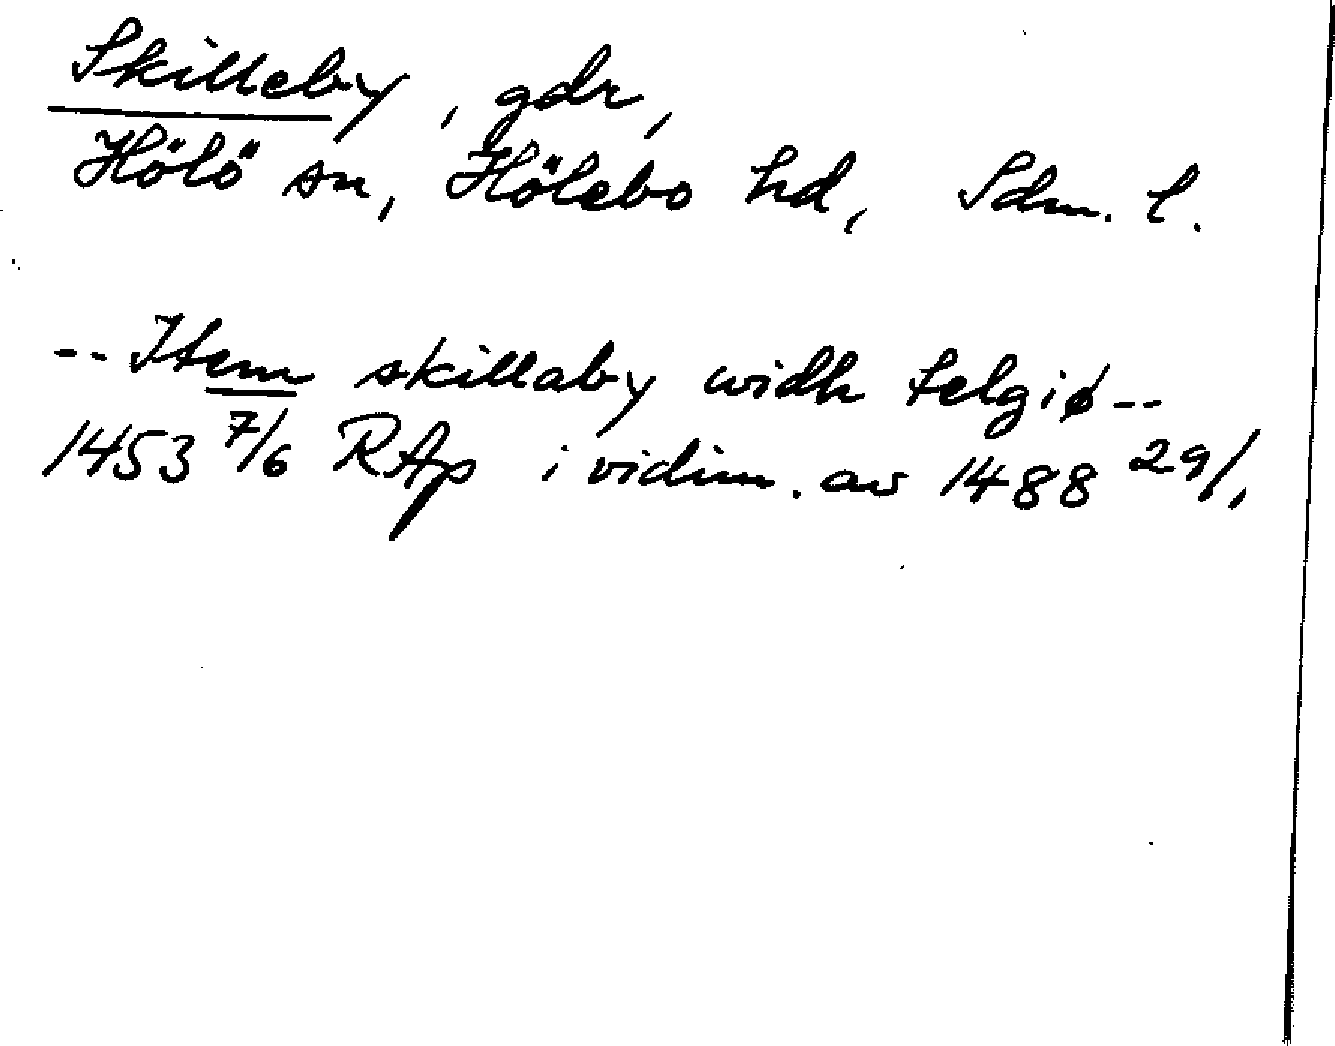 Skilleby, gdr,
Hölö sn, Hölebo hd, Sdm. l.
-- Item skillaby widh telgiø --
1453 7/6 RAp i vidim. av 1488 29/1